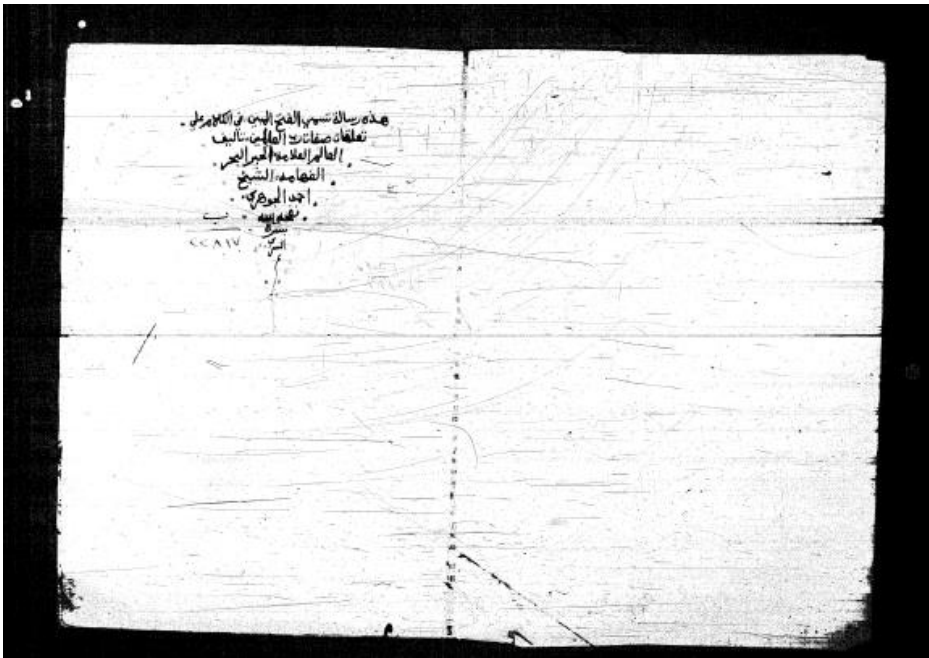 هذه رسالة تسمى الفتح المبين فى الكلام على
تعلقات صفات رب العالمين تاليف
العالم العلامة الحبر البحر
الفهامه الشيخ
احمد الجوهرى
نفعنا الله
ب
٢٢٨١٧